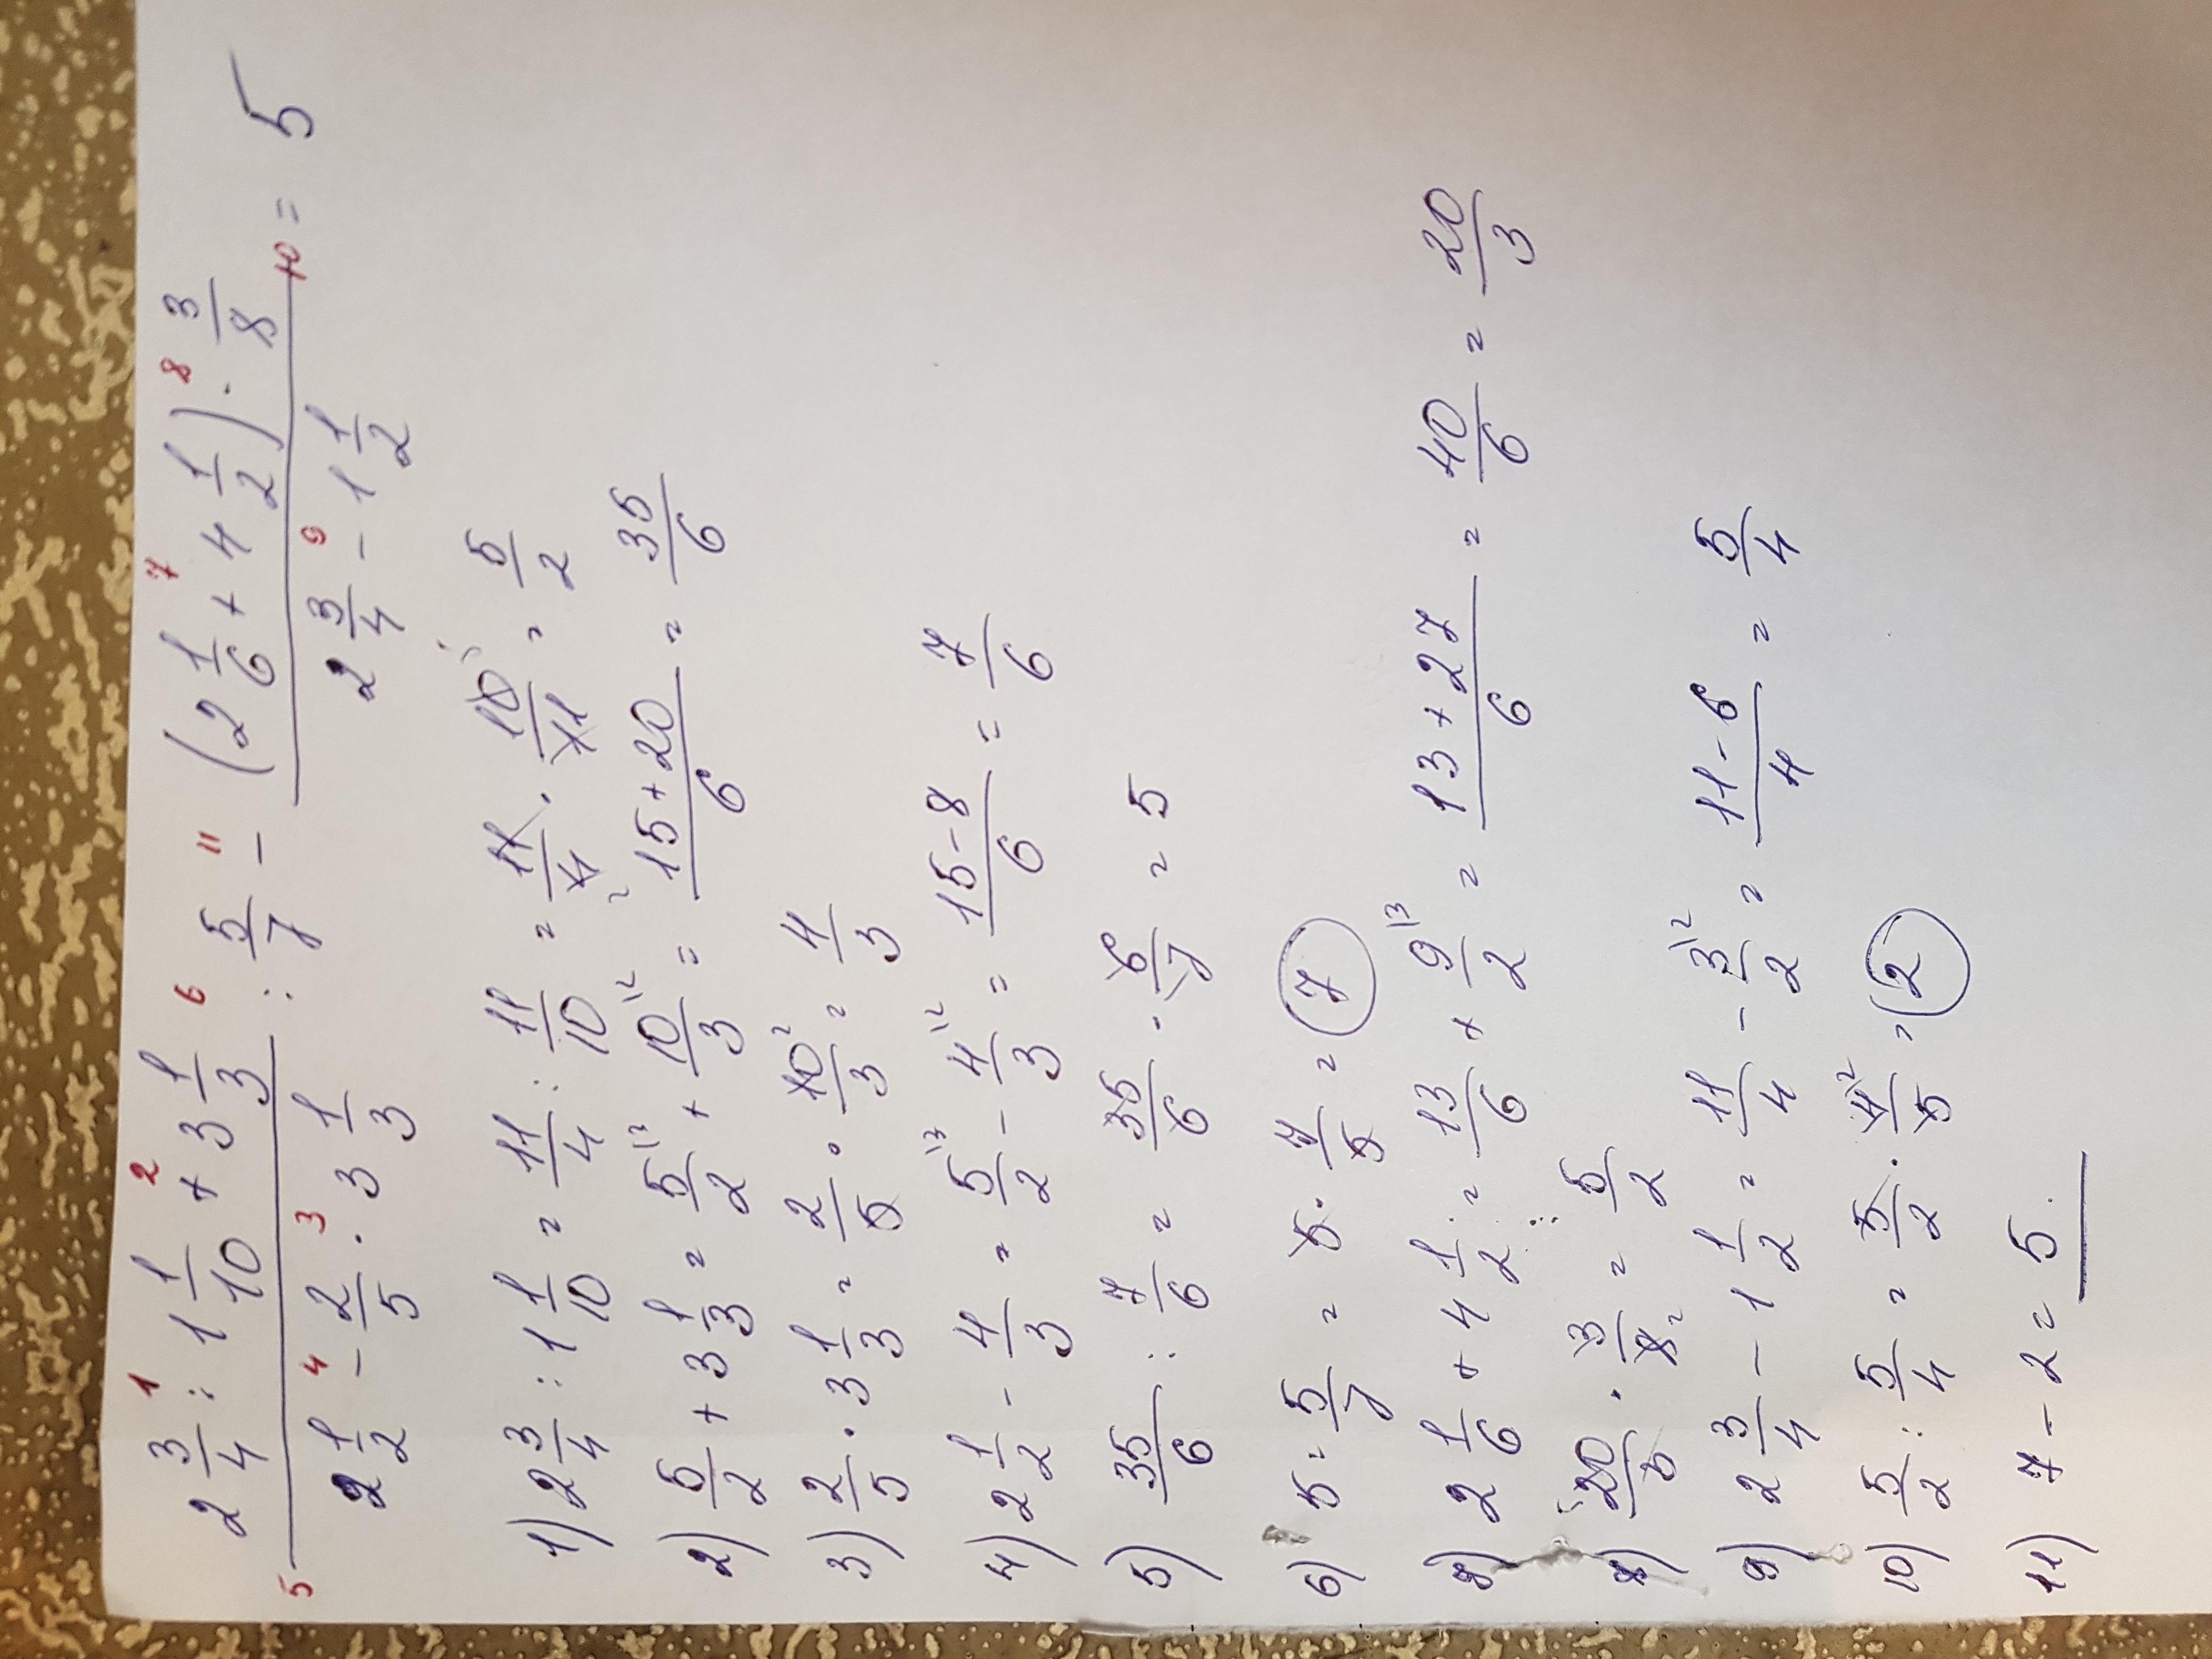 (2 3/4 : 1 1/10 + 3 1/3)/(2 1/2 - 2/5 · 3 1/3) : 5/7 - ((2 1/6 + 4 1/2) · 3/8)/(2 3/4 - 1 1/2) = 5
1) 2 3/4 : 1 1/10 = 11/4 : 11/10 = 11/4 · 10/11 = 5/2
2) 5/2 + 3 1/3 = 5/2 + 10/3 = (15+20)/6 = 35/6
3) 2/5 · 3 1/3 = 2/5 · 10/3 = 4/3
4) 2 1/2 - 4/3 = 5/2 - 4/3 = (15-8)/6 = 7/6
5) 35/6 : 7/6 = 35/6 · 6/7 = 5
6) 5 : 5/7 = 5 · 7/5 = 7
7) 2 1/6 + 4 1/2 = 13/6 + 9/2 = (13+27)/6 = 40/6 = 20/3
8) 20/3 · 3/8 = 5/2
9) 2 3/4 - 1 1/2 = 11/4 - 3/2 = (11-6)/4 = 5/4
10) 5/2 : 5/4 = 5/2 · 4/5 = 2
11) 7 - 2 = 5.